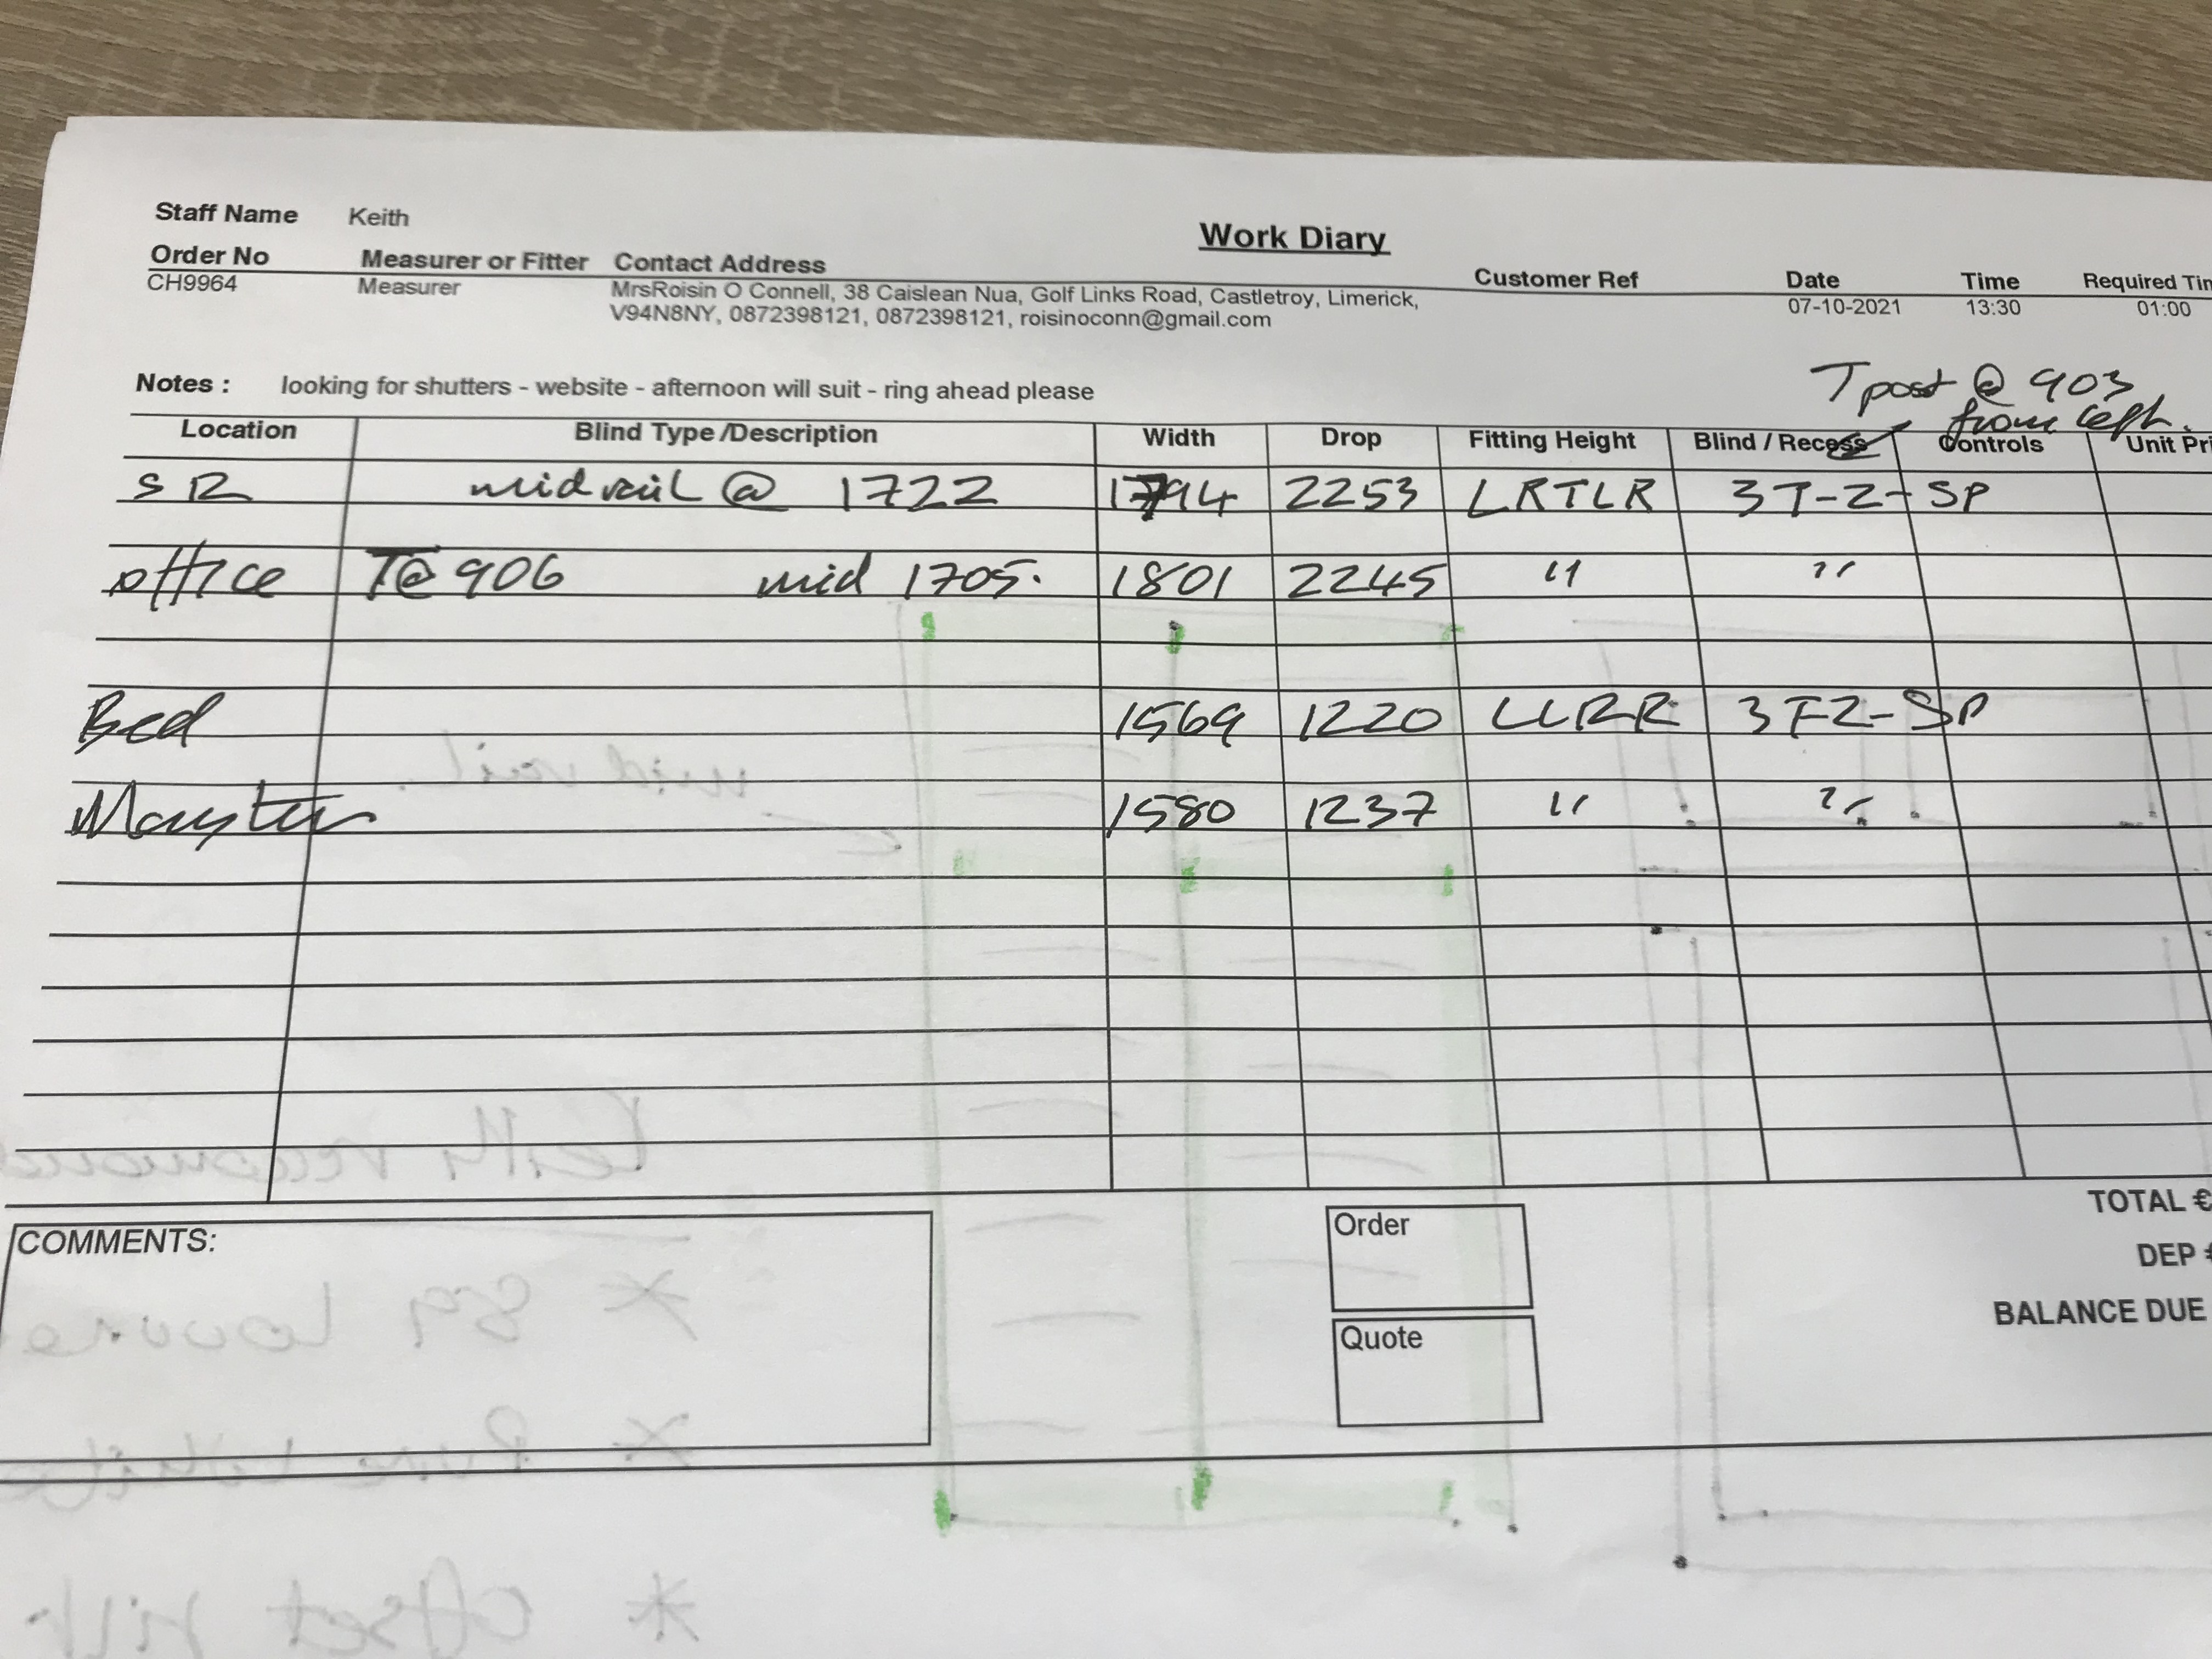 Staff Name Keith
Work Diary
Order No Measurer or Fitter Contact Address Customer Ref Date Time Required Tim
CH9964 Measurer MrsRoisin O Connell, 38 Caislean Nua, Golf Links Road, Castletroy, Limerick, 07-10-2021 13:30 01:00
V94N8NY, 0872398121, 0872398121, roisinoconn@gmail.com
Notes : looking for shutters - website - afternoon will suit - ring ahead please
T post @ 903
from left.
Location Blind Type /Description Width Drop Fitting Height Blind / Recess Controls Unit Pri
S R midrail @ 1722 1794 2253 LRTLR 3T-Z-SP
office T@ 906 mid 1705. 1801 2245 " "
Bed 1569 1220 LLRR 3FZ-SP
mid rail.
Mayster 1580 1237 " "
COMMENTS:
Order
Quote
TOTAL €
DEP €
BALANCE DUE
* 89 Louvre
* Pure White
* offset tilt